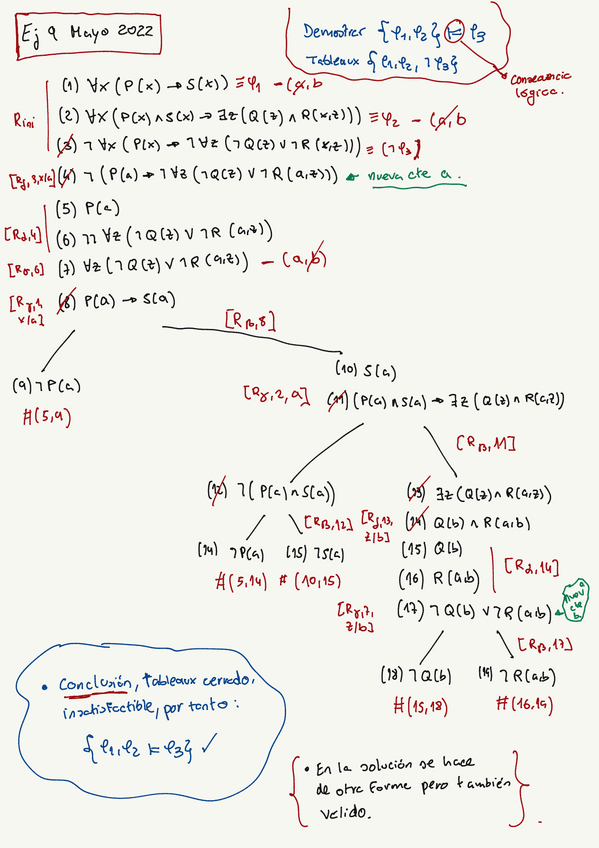 Ej 9 Mayo 2022
Demostrar {φ₁,φ₂} ⊨ φ₃
Tableaux {φ₁,φ₂, ¬φ₃}
Consecuencia
lógica.
Rini
(1) ∀x (P(x) → S(x)) ≡ φ₁ - (a,b
(2) ∀x (P(x) ∧ S(x) → ∃z (Q(z) ∧ R(x,z))) ≡ φ₂ - (a,b
(3) ¬ ∀x (P(x) → ¬ ∀z (¬Q(z) ∨ ¬R(x,z))) ≡ (¬φ₃)
[Rδ,3,x/a] (4) ¬ (P(a) → ¬ ∀z (¬Q(z) ∨ ¬R(a,z))) ← nueva cte a.
(5) P(a)
[Rα,4]
(6) ¬¬ ∀z (¬Q(z) ∨ ¬R(a,z))
[Rσ,6] (7) ∀z (¬Q(z) ∨ ¬R(a,z)) - (a,b)
[Rγ,1, x/a] (8) P(a) → S(a)
[Rβ,8]
(9) ¬P(a)
#(5,9)
(10) S(a)
[Rγ,2,a] (11) (P(a) ∧ S(a) → ∃z (Q(z) ∧ R(a,z))
[Rβ,11]
(12) ¬(P(a) ∧ S(a))
[Rβ,12]
(14) ¬P(a) (15) ¬S(a)
#(5,14) #(10,15)
(13) ∃z (Q(z) ∧ R(a,z))
[Rδ,13, z/b] (14) Q(b) ∧ R(a,b)
(15) Q(b)
(16) R(a,b)
[Rα,14]
[Rγ,7, z/b] (17) ¬Q(b) ∨ ¬R(a,b) ← nueva cte b
[Rβ,17]
(18) ¬Q(b) (19) ¬R(a,b)
#(15,18) #(16,19)
• Conclusión, Tableaux cerrado,
insatisfactible, por tanto:
{φ₁,φ₂ ⊨ φ₃} ✓
• En la solución se hace
de otra forma pero también
válido.